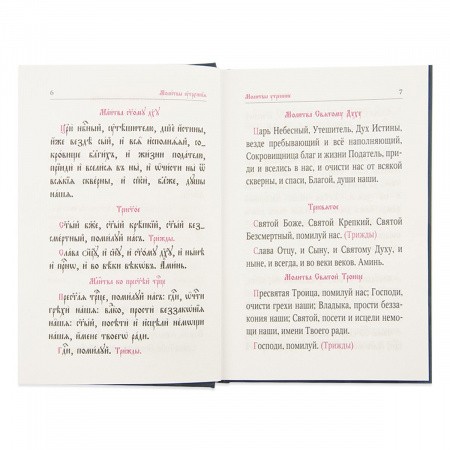 6 Моли́твы ᲂу҆́трєннїѧ
Моли́тва ст҃о́мꙋ дх҃ꙋ
Цр҃ю̀ нбⷭ҇ный, ᲂу҆тѣ́шителю, дш҃е и҆́стины,
и҆́же вездѣ̀ сы́й, и҆ всѧ̑ и҆сполнѧ́ѧй, со-
кро́вище бл҃ги́хъ, и҆ жи́зни пода́телю,
прїидѝ и҆ всели́сѧ въ ны̀, и҆ ѡ҆чи́сти ны̀ ѿ
всѧ́кїѧ скве́рны, и҆ сп҃сѝ, бл҃же, дꙋ́шы
на́шѧ.
Трист҃о́е
Ст҃ы́й бж҃е, ст҃ы́й крѣ́пкїй, ст҃ы́й без-
сме́ртный, поми́лꙋй на́съ. Три́жды.
Сла́ва ѻ҆ц҃ꙋ̀, и҆ сн҃ꙋ, и҆ ст҃о́мꙋ дх҃ꙋ, и҆ ны́нѣ
и҆ при́снѡ, и҆ во вѣ́ки вѣкѡ́въ. А҆ми́нь.
Моли́тва ко прест҃ѣ́й трⷪ҇цѣ
Прест҃а́ѧ трⷪ҇це, поми́лꙋй на́съ: гдⷭ҇и, ѡ҆чи́сти
грѣхѝ на́шѧ: влⷣко, простѝ беззакѡ́нїѧ
на̑ша: ст҃ы́й, посѣтѝ и҆ и҆сцѣлѝ не́мѡщи
на́шѧ, и҆́мене твоегѡ̀ ра́ди.
Гдⷭ҇и, поми́лꙋй. Три́жды.
Молитвы утренни 7
Молитва Святому Духу
Царь Небесный, Утешитель, Дух Истины,
везде пребывающий и всё наполняющий,
Сокровищница благ и жизни Податель,
приди и вселись в нас, и очисти нас от всякой
скверны, и спаси, Благой, души наши.
Трисвятое
Святой Боже, Святой Крепкий, Святой
Безсмертный, помилуй нас. (Трижды)
Слава Отцу, и Сыну, и Святому Духу, и
ныне, и всегда, и во веки веков. Аминь.
Молитва Святой Троице
Пресвятая Троица, помилуй нас; Господи,
очисти грехи наши; Владыка, прости безза-
кония наши; Святой, посети и исцели немо-
щи наши, имени Твоего ради.
Господи, помилуй. (Трижды)